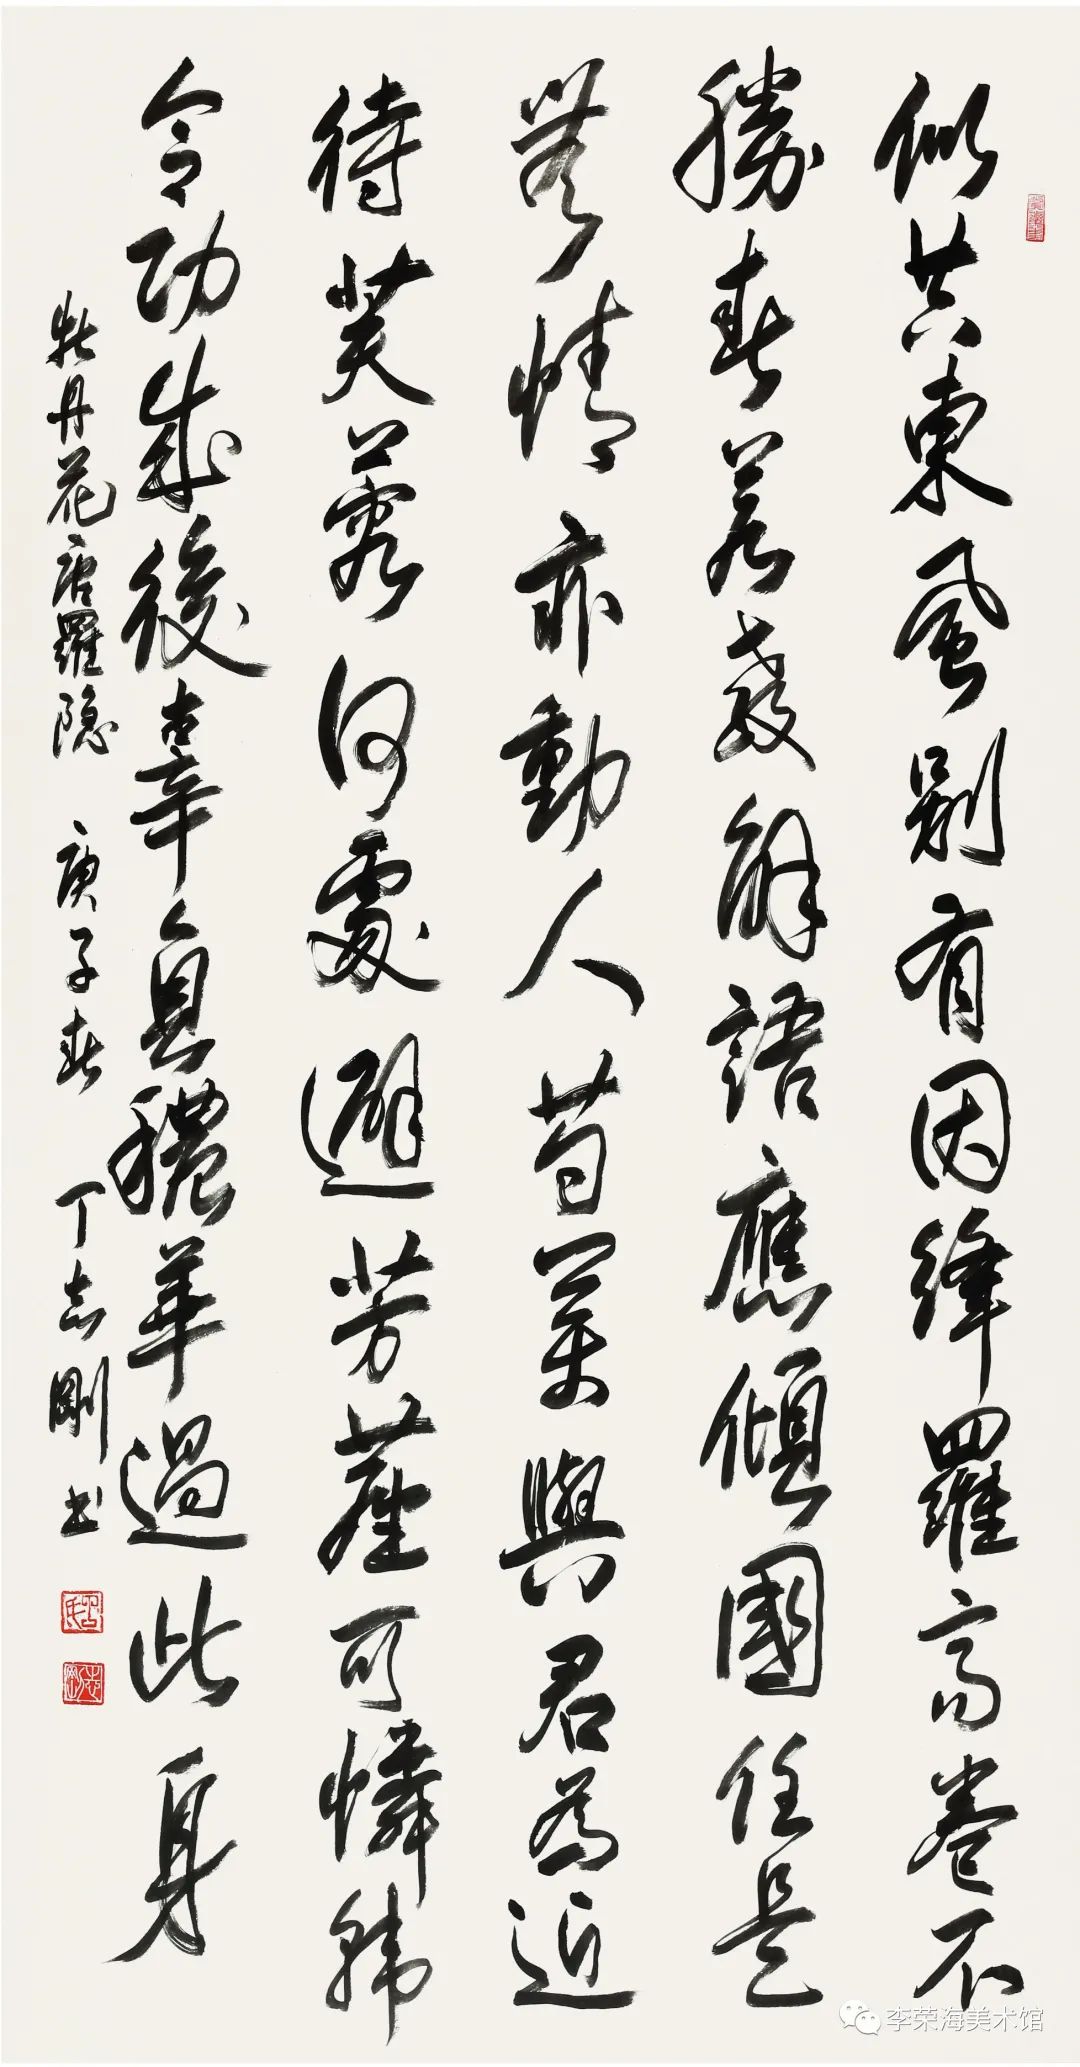 似共東風別有因絳羅高卷不
勝春若教解語應傾國任是
無情亦動人芍藥與君為近
待芙蓉何處避芳塵可憐韓
令功成後辜負穠華過此身
牡丹花唐羅隐 庚子春 丁志剛书
李荣海美术馆